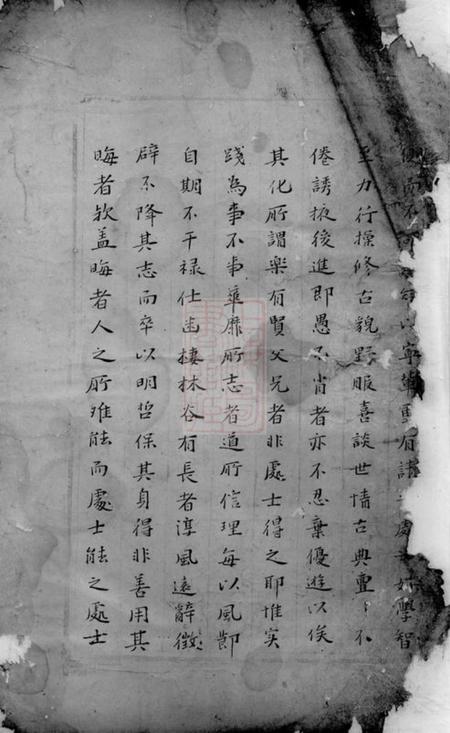 而不 以寧 重有 處士好學智
至力行操修古貌野服喜談世情古典亹〻不
倦誘掖後進即愚不肖者亦不忍棄優遊以俟
其化所謂樂有賢父兄者非處士得之耶惟实
踐為事不事華靡所志者道所信理每以風節
自期不干禄仕幽棲林谷有長者淳風遠辭徵
辟不降其志而卒以明哲保其身得非善用其
晦者欤盖晦者人之所难能而處士能之處士